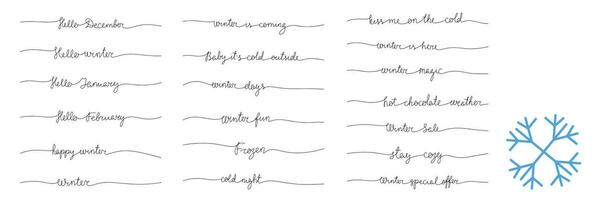 Hello December
Hello winter
Hello January
Hello February
happy winter
winter
winter is coming
Baby it's cold outside
winter days
winter fun
Frozen
cold night
kiss me on the cold
winter is here
winter magic
hot chocolate weather
Winter Sale
stay cozy
winter special offer